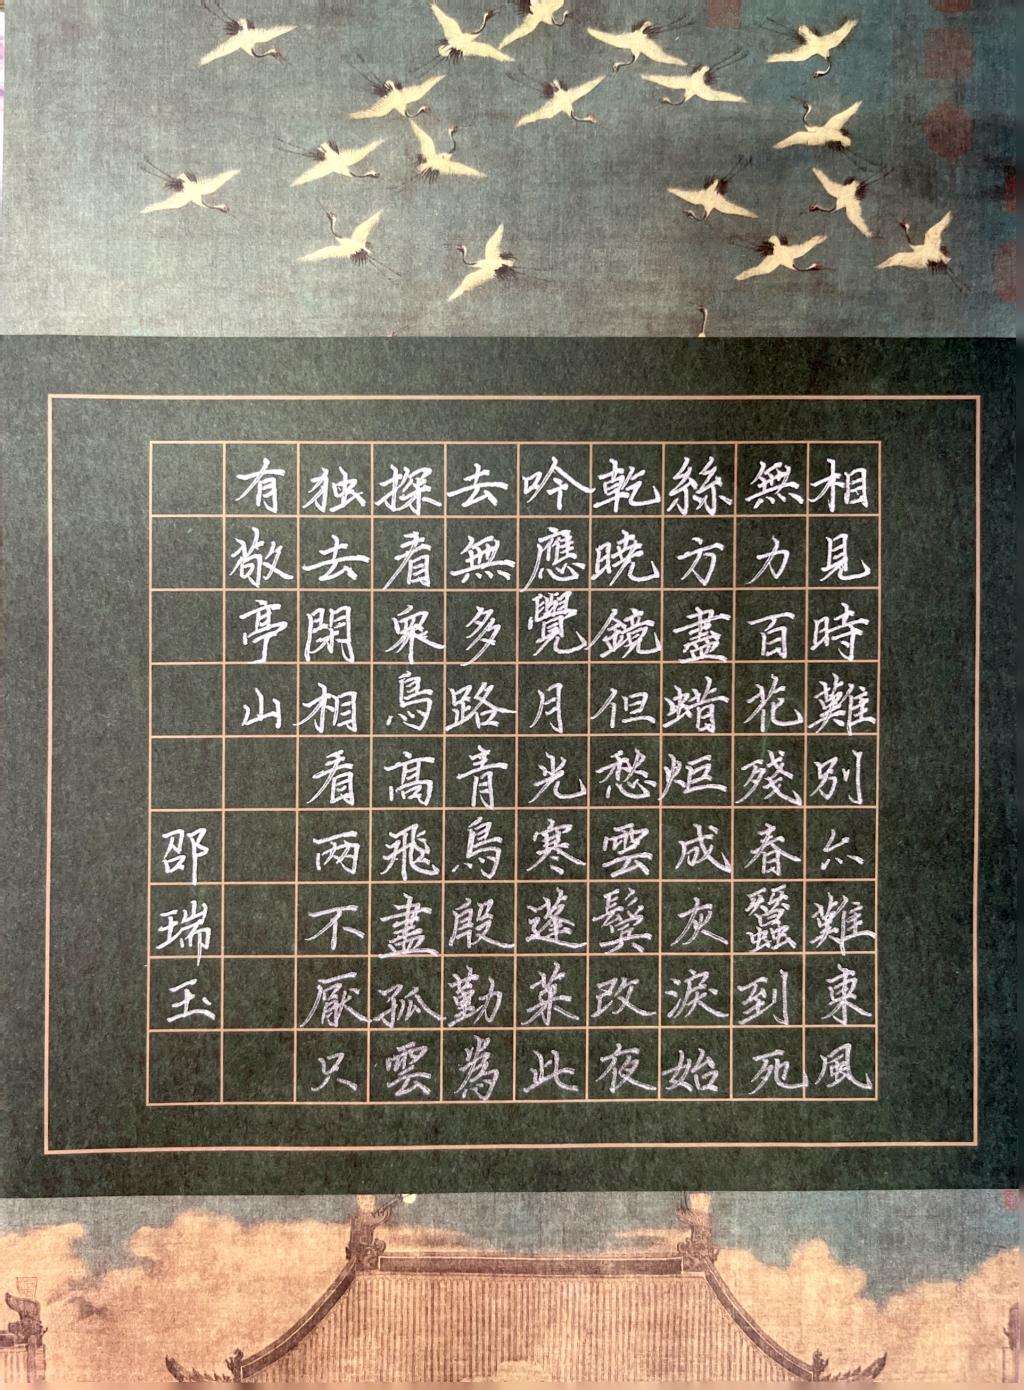 相見時難別亦難東風
無力百花殘春蠶到死
絲方盡蜡炬成灰淚始
乾曉鏡但愁雲鬢改夜
吟應覺月光寒蓬莱此
去無多路青鳥殷勤為
探看衆鳥高飛盡孤雲
独去閑相看两不厭只
有敬亭山
邵瑞玉